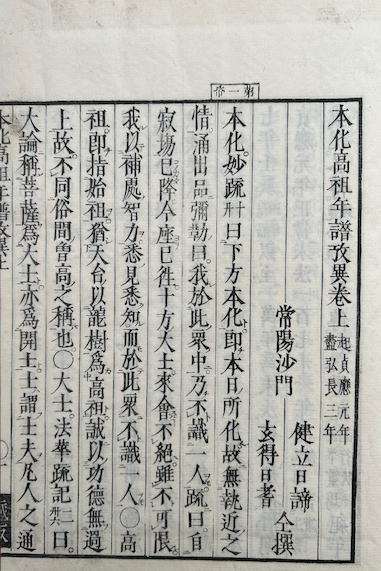 第一帝
本化高祖年譜攷異卷上 起貞應元年 盡弘長三年
常陽沙門 健立日諦 玄得日耆 仝撰
本化妙疏廿曰下方本化即本日所化故無執近之
情涌出品彌勒曰我於此眾中乃不識一人疏曰自
寂塲已降今座已往十方大士來會不絕雖不可限
我以補處智力悉見悉知而於此眾不識一人〇高
祖即指始祖猶天台以龍樹爲高祖誠以功德無過
上故不同俗間曾高之稱也〇大士法華疏記二曰
大論稱菩薩爲大士亦爲開士士謂士夫凡人之通
本化高祖年譜攷異上